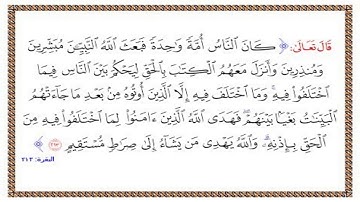 قَالَ تَعَالَىٰ: ﴿ كَانَ ٱلنَّاسُ أُمَّةً وَٰحِدَةً فَبَعَثَ ٱللَّهُ ٱلنَّبِيِّـۧنَ مُبَشِّرِينَ
وَمُنذِرِينَ وَأَنزَلَ مَعَهُمُ ٱلْكِتَـٰبَ بِٱلْحَقِّ لِيَحْكُمَ بَيْنَ ٱلنَّاسِ فِيمَا
ٱخْتَلَفُوا۟ فِيهِ ۚ وَمَا ٱخْتَلَفَ فِيهِ إِلَّا ٱلَّذِينَ أُوتُوهُ مِنۢ بَعْدِ مَا جَآءَتْهُمُ
ٱلْبَيِّنَـٰتُ بَغْيًۢا بَيْنَهُمْ ۖ فَهَدَى ٱللَّهُ ٱلَّذِينَ ءَامَنُوا۟ لِمَا ٱخْتَلَفُوا۟ فِيهِ مِنَ
ٱلْحَقِّ بِإِذْنِهِۦ ۗ وَٱللَّهُ يَهْدِى مَن يَشَآءُ إِلَىٰ صِرَٰطٍ مُّسْتَقِيمٍ ٢١٣ ﴾
البقرة: ٢١٣